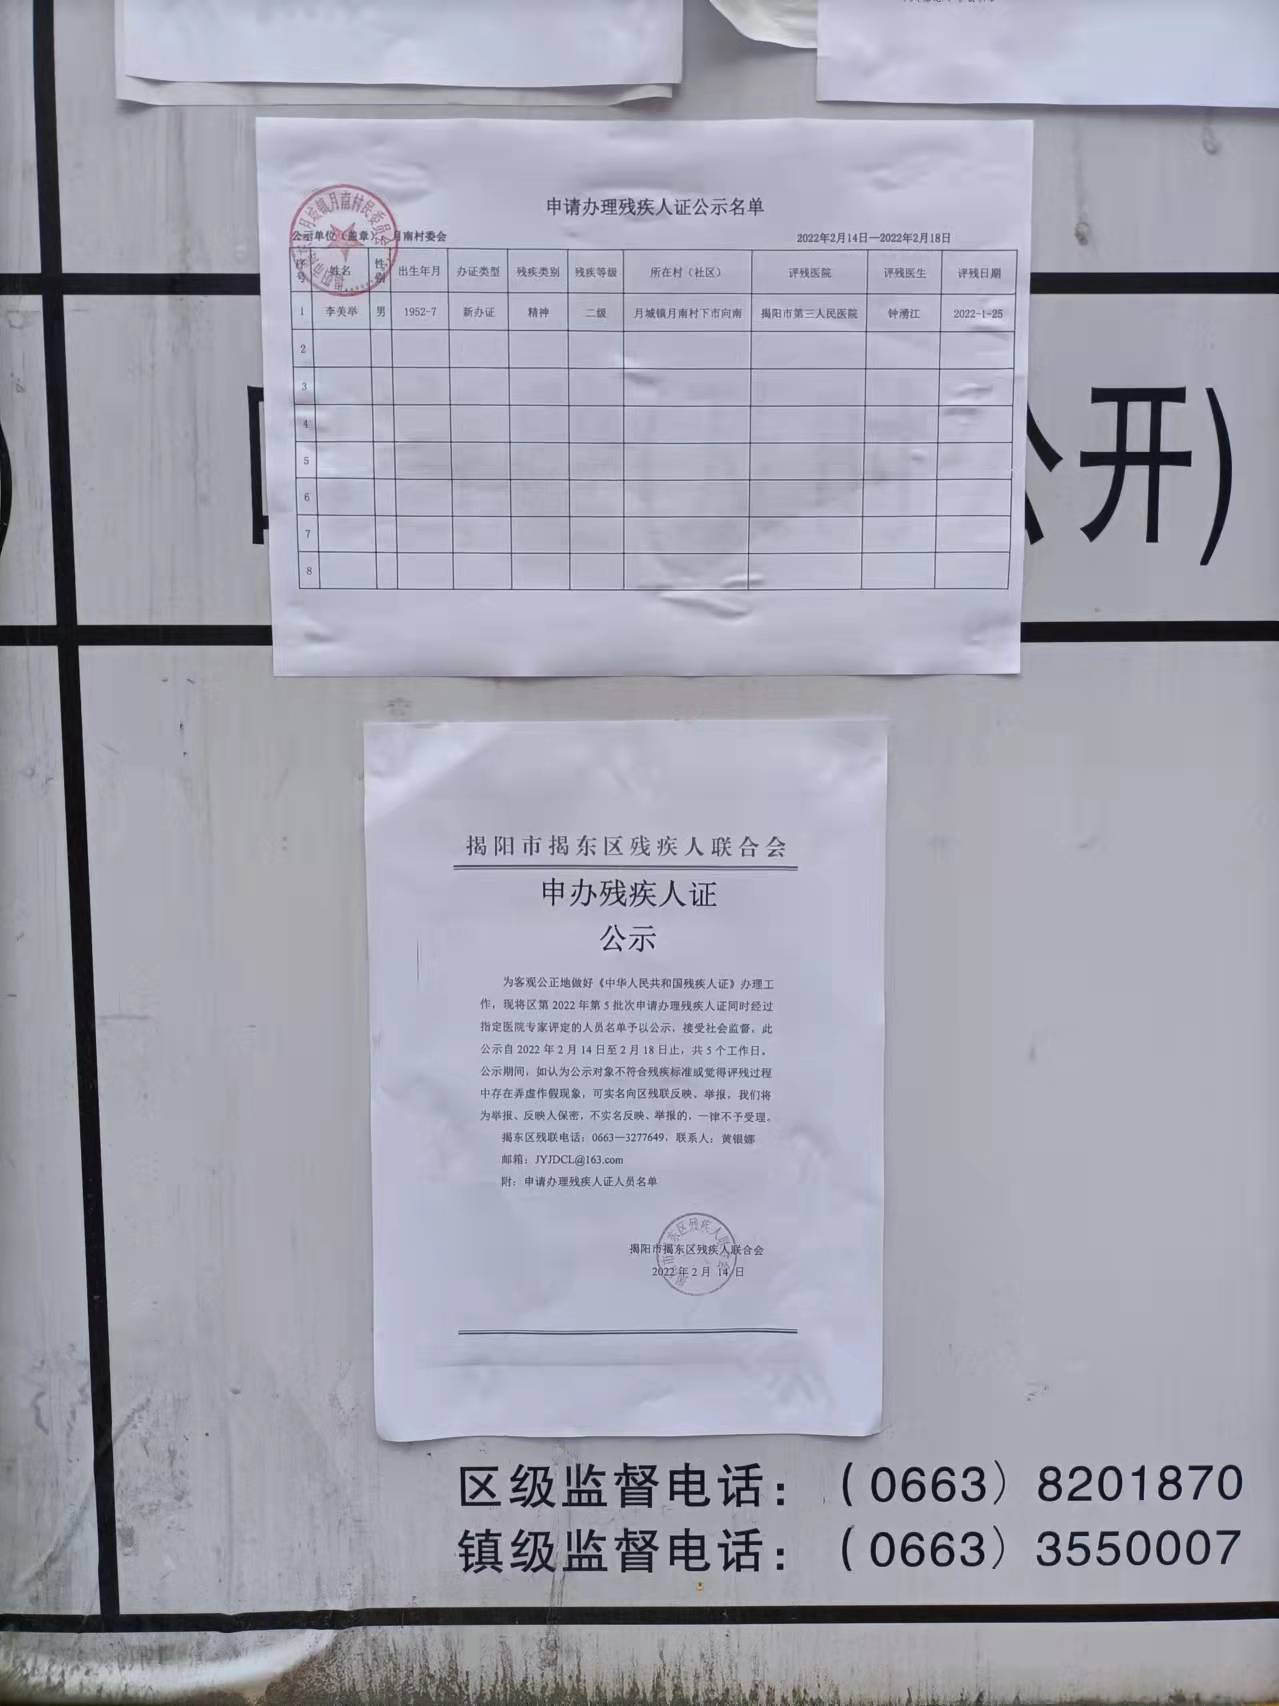 申请办理残疾人证公示名单
公示单位（盖章） 月南村委会 2022年2月14日—2022年2月18日
序号 姓名 性别 出生年月 办证类型 残疾类别 残疾等级 所在村（社区） 评残医院 评残医生 评残日期
1 李美举 男 1952-7 新办证 精神 二级 月城镇月南村下市向南 揭阳市第三人民医院 钟湧江 2022-1-25
2
3
4
5
6
7
8
公开)
揭阳市揭东区残疾人联合会
申办残疾人证
公示
为客观公正地做好《中华人民共和国残疾人证》办理工
作，现将区第 2022 年第 5 批次申请办理残疾人证同时经过
指定医院专家评定的人员名单予以公示，接受社会监督，此
公示自 2022 年 2 月 14 日至 2 月 18 日止，共 5 个工作日。
公示期间，如认为公示对象不符合残疾标准或觉得评残过程
中存在弄虚作假现象，可实名向区残联反映、举报，我们将
为举报、反映人保密，不实名反映、举报的，一律不予受理。
揭东区残联电话：0663—3277649，联系人：黄银娜
邮箱：JYJDCL@163.com
附：申请办理残疾人证人员名单
揭阳市揭东区残疾人联合会
2022 年 2 月 14 日
区级监督电话：（0663）8201870
镇级监督电话：（0663）3550007